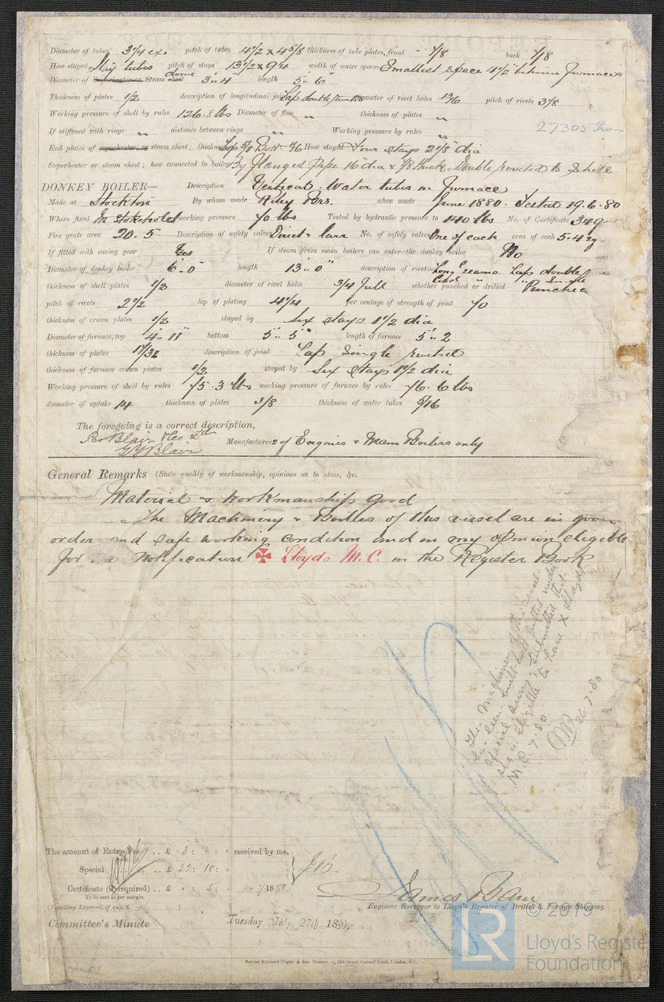 Diameter of tubes 3 1/4 ex. pitch of tubes 4 1/2 x 4 5/8 thickness of tube plates, front 7/8 back 7/8
How stayed Stay tubes pitch of stays 13 1/2 x 9 1/4 width of water spaces Smallest space 4 1/2 between furnaces
Diameter of Steam dome 3' 4" length 5' 6"
Thickness of plates 1/2 description of longitudinal joint Lap double diameter of rivet holes 13/16 pitch of rivets 3 1/8
Working pressure of shell by rules 126.8 lbs Diameter of flue " thickness of plates "
27305 Iron
If stiffened with rings " distance between rings " Working pressure by rules "
End plates of steam chest; thickness How stayed Four stays 2 1/8 dia
Superheater or steam chest; how connected to boiler By Flanged Pipe 16 dia x 7/8 thick. Double riveted to shell
DONKEY BOILER— Description Vertical: Water tubes in furnace
Made at Stockton By whom made Riley Bros. when made June 1880. Tested 19.6.80
Where fixed In Stokehold working pressure 70 lbs Tested by hydraulic pressure to 140 lbs No. of Certificate 349
Fire grate area 20.5 Description of safety valves Direct & Lever No. of safety valves One of each area of each 5.4
If fitted with easing gear Yes If steam from main boilers can enter the donkey boiler No
Diameter of donkey boiler 6' 0" length 13' 0" description of riveting Long seams. Lap double
thickness of shell plates 1/2 diameter of rivet holes 3/4 full whether punched or drilled Punched
pitch of rivets 2 1/2 lap of plating 4 1/4 per centage of strength of joint 70
thickness of crown plates 1/2 stayed by six stays 1 1/2 dia
Diameter of furnace, top 4' 11" bottom 5' 5" length of furnace 5' 2
thickness of plates 17/32 description of joint Lap single riveted
thickness of furnace crown plates 1/2 stayed by Six stays 1 1/2 dia
Working pressure of shell by rules 75.3 lbs working pressure of furnace by rules 76.6 lbs
diameter of uptake 14 thickness of plates 3/8 thickness of water tubes 5/16
The foregoing is a correct description,
G Y Blair Manufacturers of Engines & Main Boilers only
General Remarks (State quality of workmanship, opinions as to class, &c.
Material & workmanship good
The Machinery & Boilers of this vessel are in good
order and safe working condition and in my opinion eligible
for a notification ✠ Lloyds M.C. in the Register Book
The Machinery of this vessel
has been built and fitted under
special survey & submitted that
she is eligible to have X Lloyds
M.C. 7.80
26.7.80
The amount of Entry Fee .. £ 3 : :  received by me,
Special .. £ 22 : 10 :
Certificate (if required) .. £ : 5 : 1880
To be sent as per margin.
(Travelling Expenses, if any, £
James Bain
Engineer Surveyor to Lloyd's Register of British & Foreign Shipping.
Committee's Minute Tuesday July 27th 1880
LR
© 2019
Lloyd's Register
Foundation